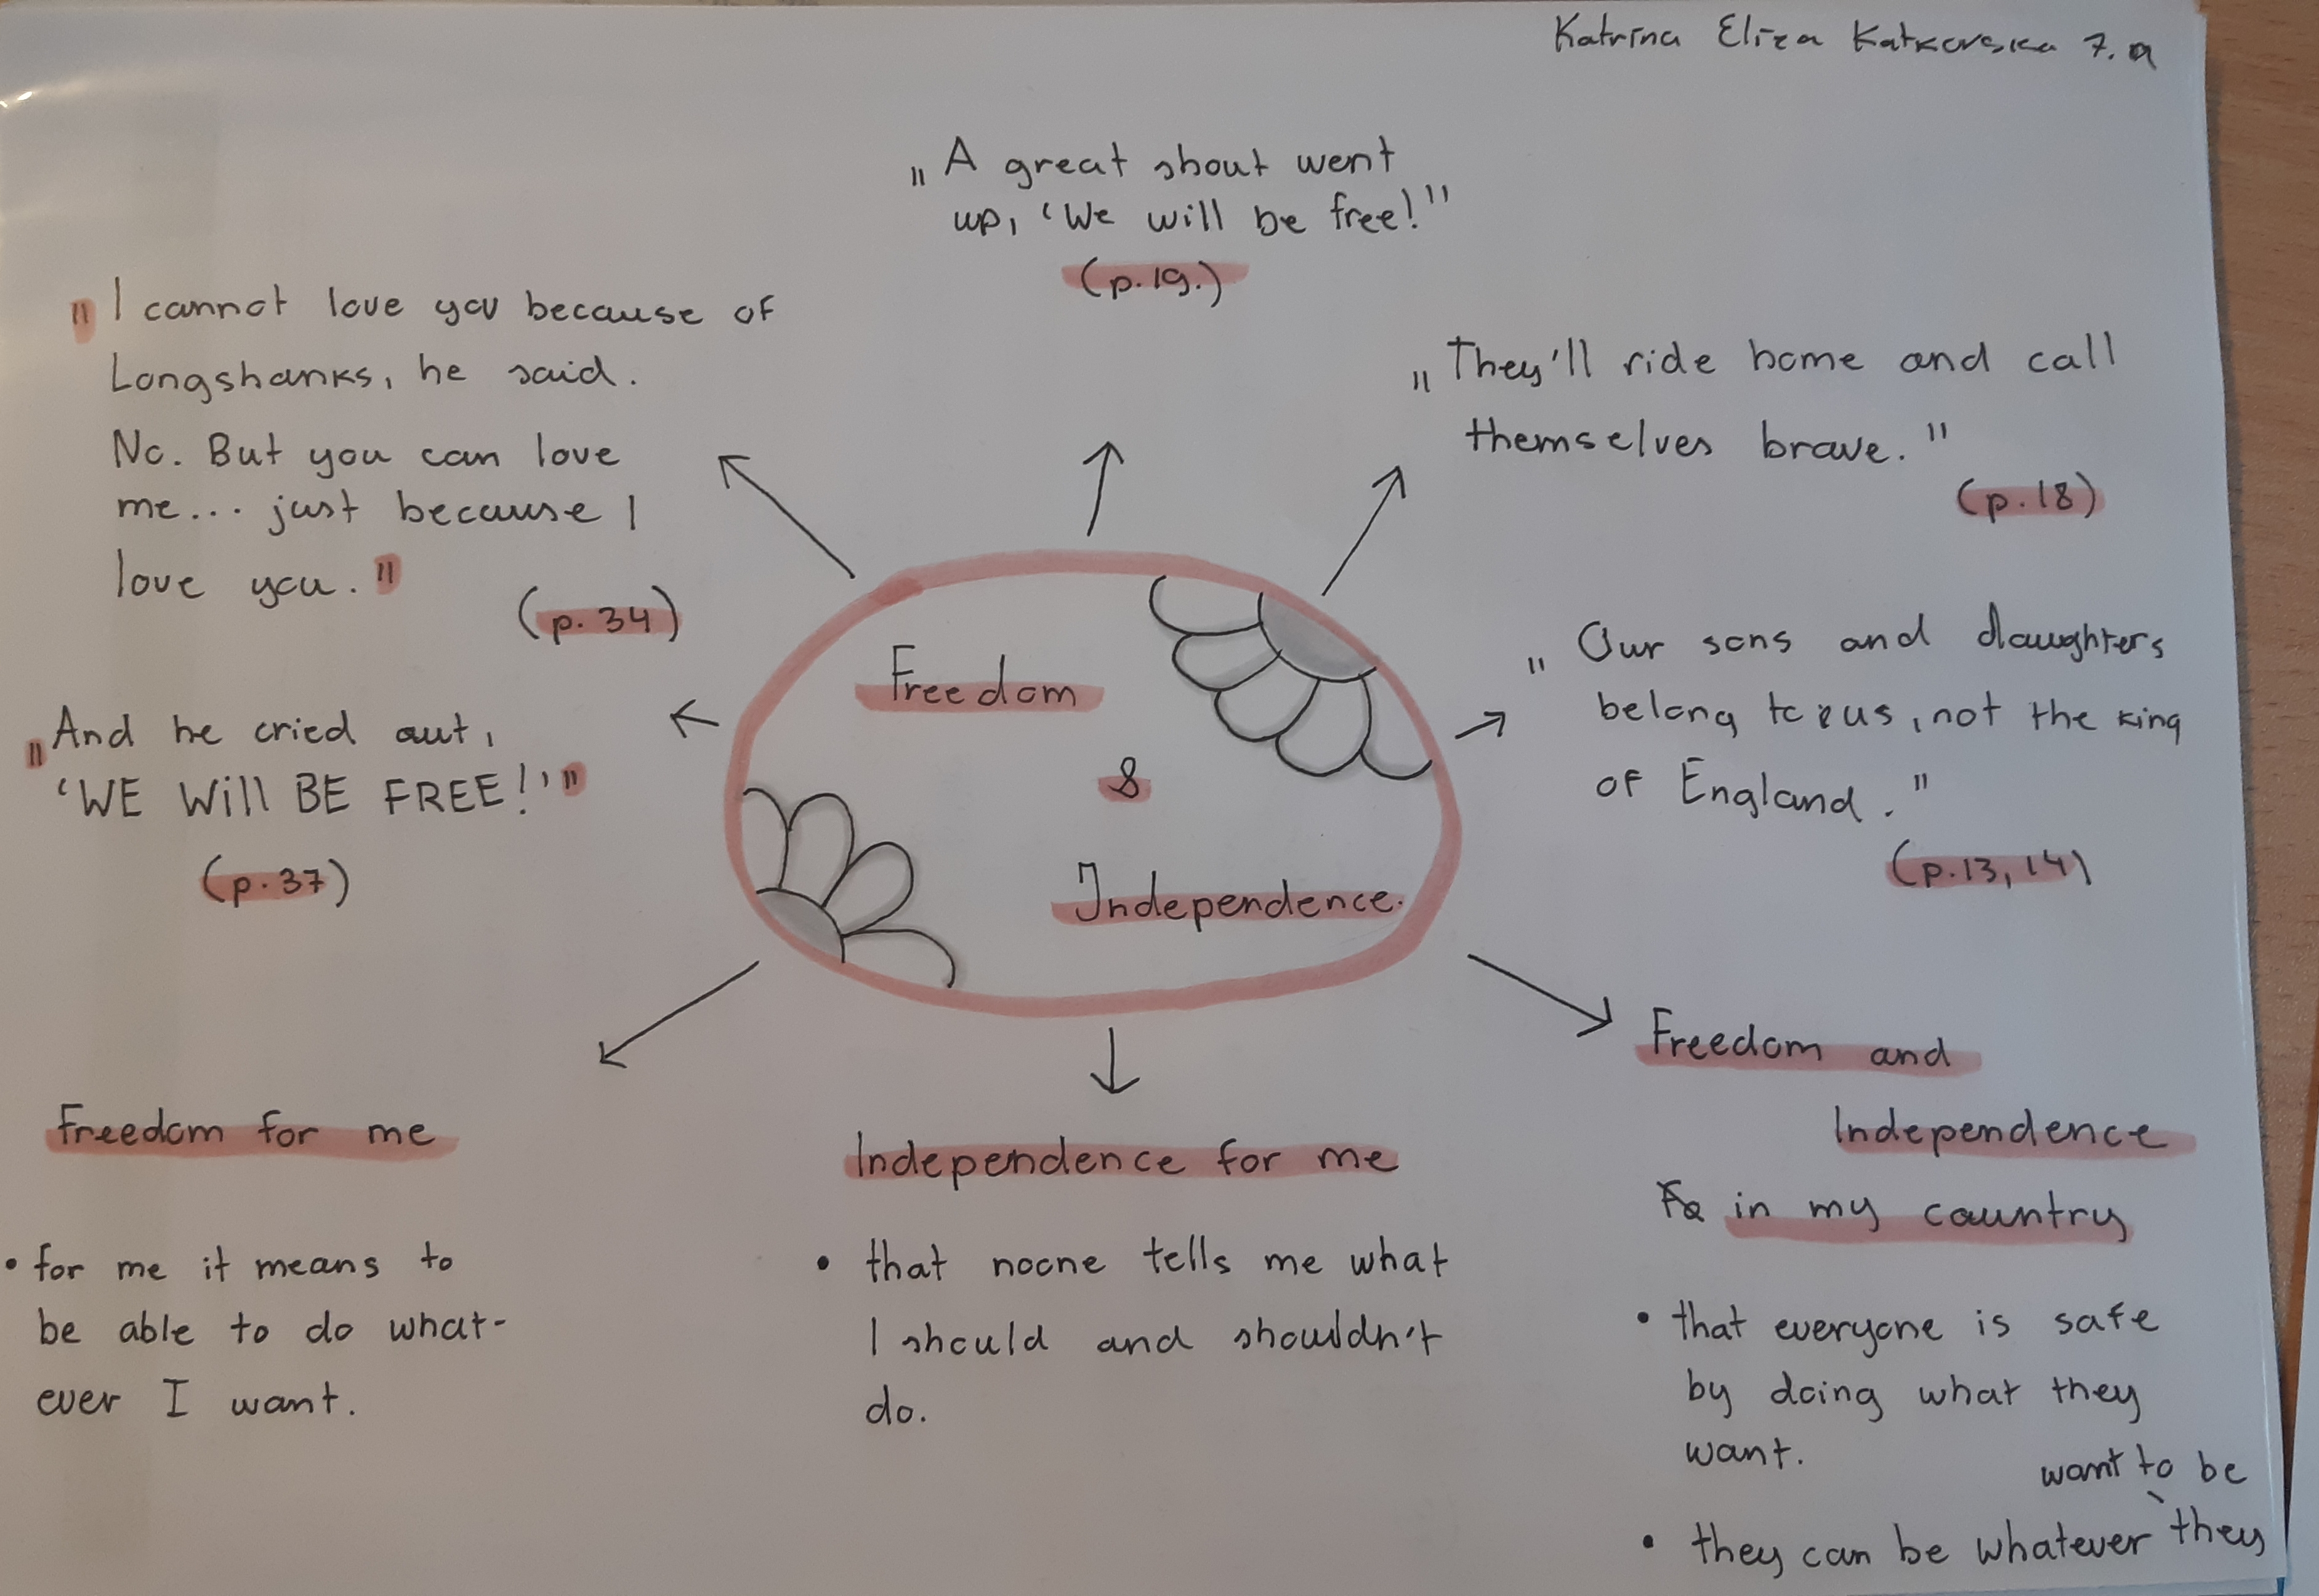 Katrīna Elīza Katkovska 7.a
„A great shout went
up, ‘We will be free!”
(p.19.)
"I cannot love you because of
Longshanks, he said.
No. But you can love
me... just because I
love you."
(p.34)
„They'll ride home and call
themselves brave."
(p.18)
„And he cried out,
‘WE Will BE FREE!’"
(p.37)
„Our sons and daughters
belong to us, not the king
of England."
(p.13, 14)
Freedom
&
Independence.
Freedom for me
• for me it means to
be able to do what-
ever I want.
Independence for me
• that noone tells me what
I should and shouldn't
do.
Freedom and
Independence
in my country
• that everyone is safe
by doing what they
want.
want to be
• they can be whatever they